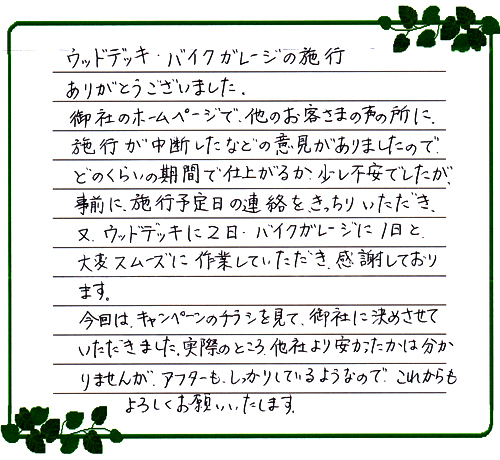 ウッドデッキ・バイクガレージの施行
ありがとうございました。
御社のホームページで、他のお客さまの声の所に、
施行が中断したなどの意見がありましたので、
どのくらいの期間で仕上がるか、少し不安でしたが、
事前に、施行予定日の連絡を、きっちりいただき、
又、ウッドデッキに2日・バイクガレージに1日と、
大変スムーズに作業していただき、感謝しており
ます。
今回は、キャンペーンのチラシを見て、御社に決めさせて
いただきました。実際のところ、他社より安かったかは分か
りませんが、アフターも、しっかりしているようなので、これからも
よろしくお願いいたします。